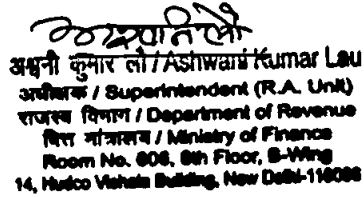 अश्वनी कुमार लौ / Ashwani Kumar Lau
अधीक्षक / Superintendent (R.A. Unit)
राजस्व विभाग / Department of Revenue
वित्त मंत्रालय / Ministry of Finance
Room No. 606, 6th Floor, B-Wing
14, Hudco Vishala Building, New Delhi-110066